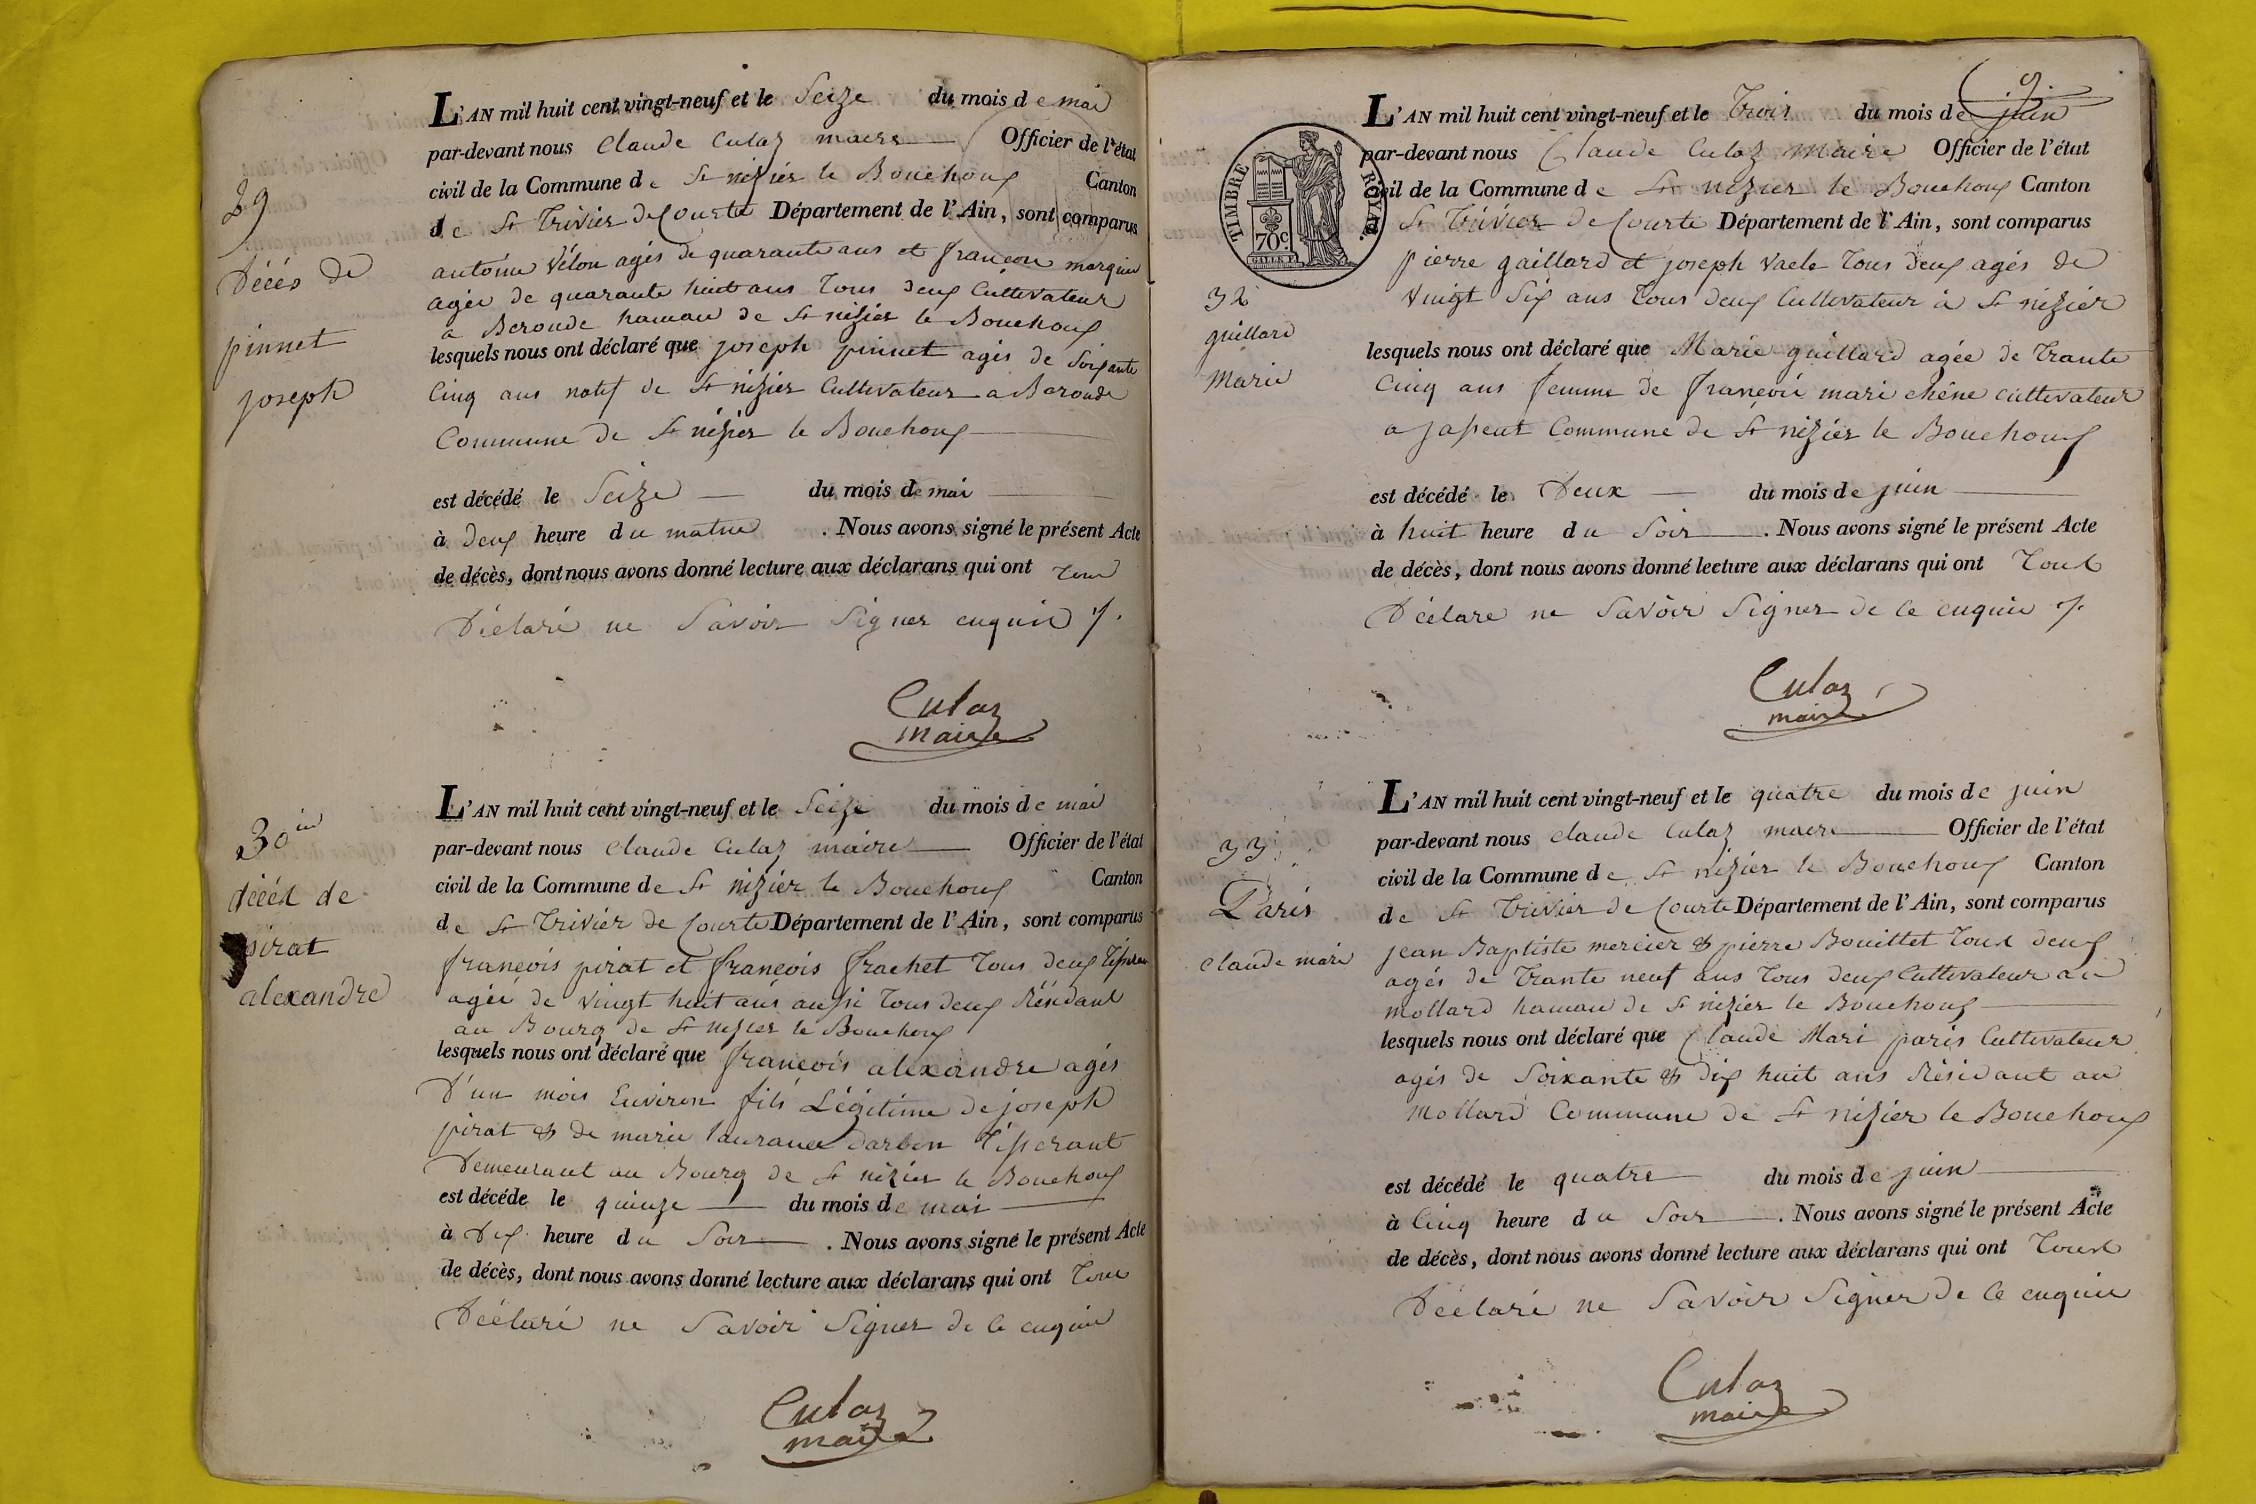 29
Décés de
pinnet
joseph
L'AN mil huit cent vingt-neuf et le Seize du mois de mai
par-devant nous Claude Culaz maire Officier de l'état
civil de la Commune de St nizier le Bouchoux Canton
de St Trivier de Courte Département de l'Ain, sont comparus
antoine Vélon agés de quarante ans et françois marguin
agée de quarante huit ans Tous deux Cultivateur
a Beroude hamau de St nizier le Bouchoux
lesquels nous ont déclaré que joseph pinnet agés de Soixante
Cinq ans natif de St nizier Cultivateur a Baroude
Commune de St nizier le Bouchoux
est décédé le Seize du mois de mai
à deux heure du matin . Nous avons signé le présent Acte
de décès, dont nous avons donné lecture aux déclarans qui ont Tous
Déclaré ne Savoir Signer enquie /.
Culaz
maire
30
décéd de
pirat
alexandre
L'AN mil huit cent vingt-neuf et le Seize du mois de mai
par-devant nous Claude Culaz maire Officier de l'état
civil de la Commune de St nizier le Bouchoux Canton
de St Trivier de Courte Département de l'Ain, sont comparus
françois pirat et françois frachet Tous deux
agéé de Vingt huit ans aussi Tous deux Résidant
au Bourg de St nizier le Bouchoux
lesquels nous ont déclaré que françois alexandre agés
D'un mois Environ fils Légitime de joseph
pirat & de marie laurance darbon Tisserant
Demeurant au Bourg de St nizier le Bouchoux
est décéde le quinze du mois de mai
à Dix heure du Soir . Nous avons signé le présent Acte
de décès, dont nous avons donné lecture aux déclarans qui ont Tous
Déclaré ne Savoir Signer de ce enquie
Culaz
maire
9.
TIMBRE ROYAL
70c
32
guillard
Marie
L'AN mil huit cent vingt-neuf et le Trois du mois de juin
par-devant nous Claude Culaz maire Officier de l'état
civil de la Commune de St nizier le Bouchoux Canton
St Trivier de Courte Département de l'Ain, sont comparus
pierre gaillard et joseph Vaele Tous deux agés de
Vingt Six ans Tous deux Cultivateur à St nizier
lesquels nous ont déclaré que Marie guillard agée de Trante
Cinq ans femme de françoié mari chêne cultivateur
a japeat Commune de St nizier le Bouchoux
est décédé le Deux du mois de juin
à huit heure du Soir . Nous avons signé le présent Acte
de décès, dont nous avons donné lecture aux déclarans qui ont Tous
Déclare ne Savoir Signer de ce enquie /.
Culaz
maire
33
Paris
claude mari
L'AN mil huit cent vingt-neuf et le quatre du mois de juin
par-devant nous Claude Culaz maire Officier de l'état
civil de la Commune de St nizier le Bouchoux Canton
de St Trivier de Courte Département de l'Ain, sont comparus
jean Baptiste mercier & pierre Bouillet Tous deux
agés de Trante neuf ans Tous deux Cultivateur au
mollard hamau de St nizier le Bouchoux
lesquels nous ont déclaré que Claude Mari paris Cultivateur
agés de Soixante & dix huit ans Résidant au
Mollard Commune de St nizier le Bouchoux
est décédé le quatre du mois de juin
à Cinq heure du Soir . Nous avons signé le présent Acte
de décès, dont nous avons donné lecture aux déclarans qui ont Tous
Déclaré ne Savoir Signer de ce enquie
Culaz
maire